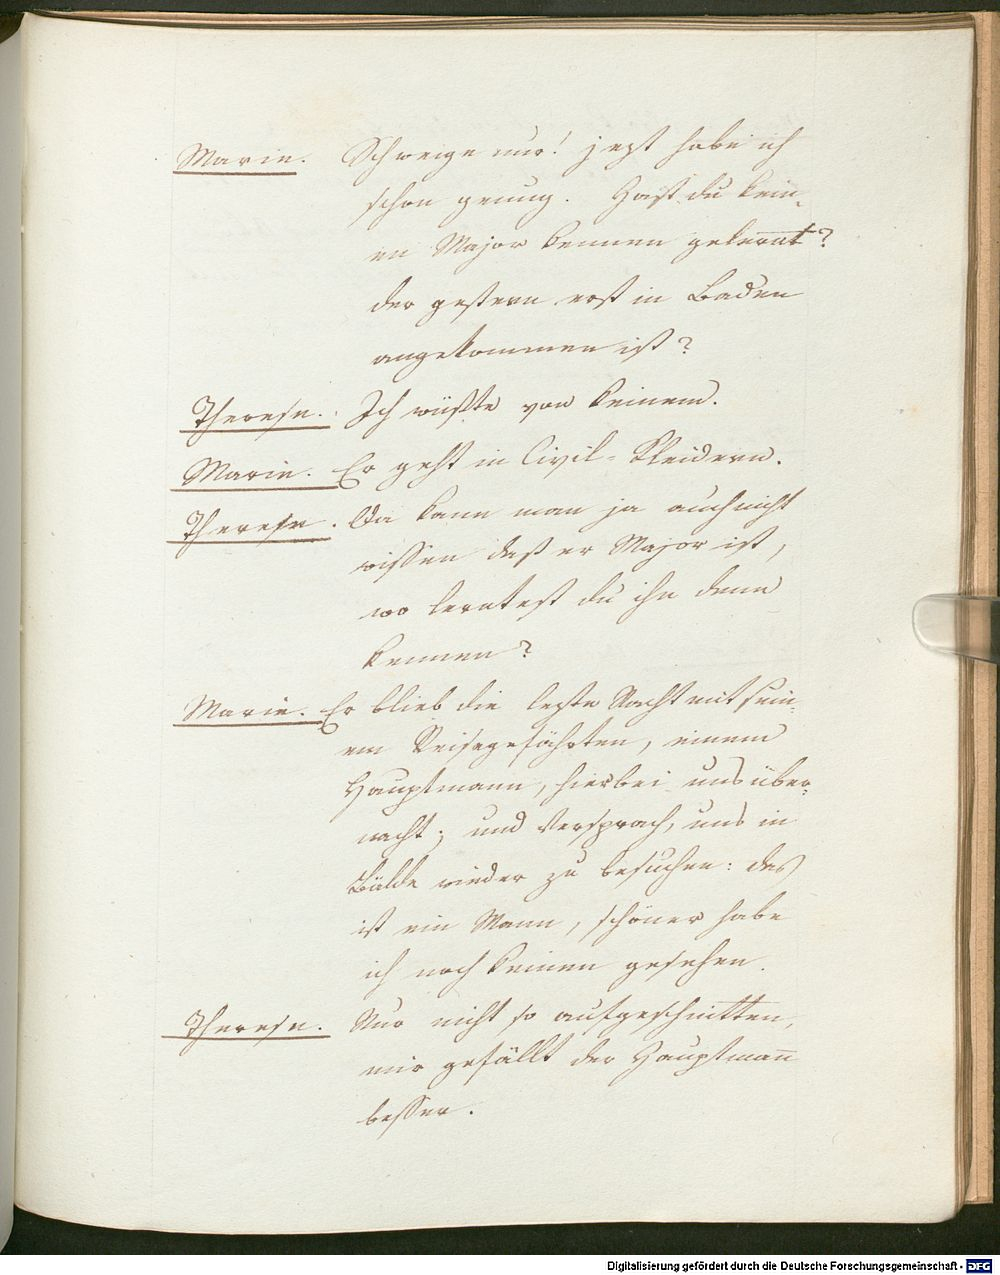 Marie. Schweige nur! jezt habe ich
schon genug. Hast du kein-
en Major kennen gelernt?
der gestern erst in Baden
angekommen ist?
Therese. Ich wüßte von keinem.
Marie. Er geht in Civil-Kleidern.
Therese. Da kann man ja auch nicht
wissen daß er Major ist,
wo lerntest du ihn denn
kennen?
Marie. Er blieb die lezte Nacht mit sein-
em Reisegefährten, einem
Hauptmann, hier bei uns über-
nacht; und versprach, uns in
Bälde wieder zu besuchen: das
ist ein Mann, schöner habe
ich noch keinen gesehen.
Therese. Nur nicht so aufgeschnitten,
mir gefällt der Hauptmann̄
besser.
Digitalisierung gefördert durch die Deutsche Forschungsgemeinschaft - DFG